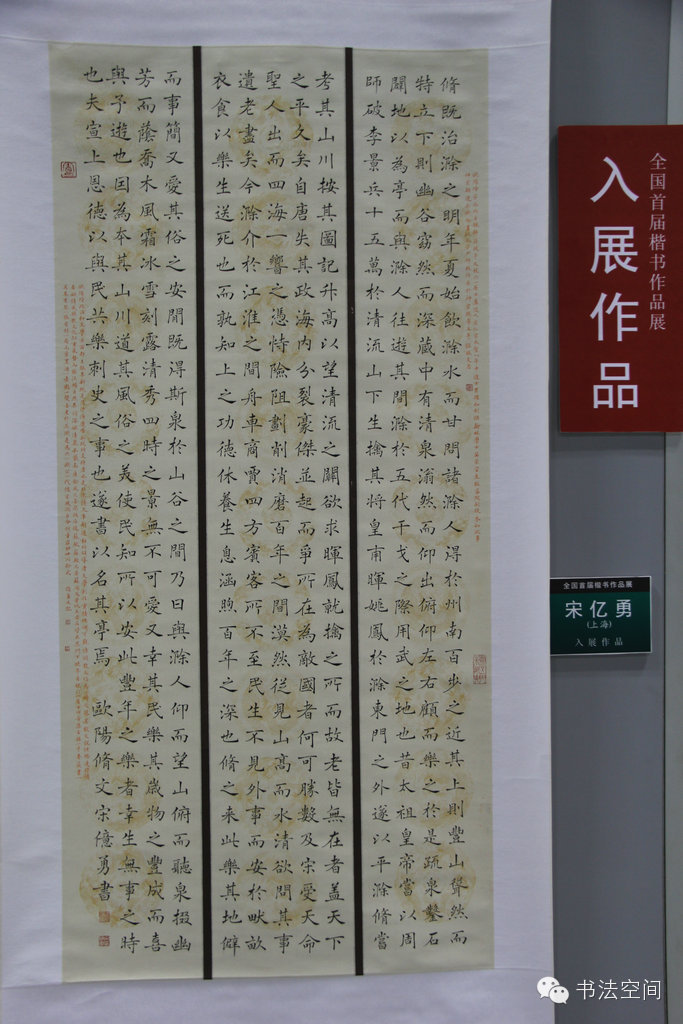 脩既治滁之明年夏始飲滁水而甘問諸滁人得於州南百步之近其上則豐山聳然而
特立下則幽谷窈然而深蔵中有清泉滃然而仰出俯仰左右顧而樂之於是疏泉鑿石
闢地以為亭而與滁人往遊其間滁於五代干戈之際用武之地也昔太祖皇帝嘗以周
師破李景兵十五萬於清流山下生擒其將皇甫暉姚鳳於滁東門之外遂以平滁脩嘗
考其山川按其圖記升高以望清流之關欲求暉鳳就擒之所而故老皆無在者盖天下
之平久矣自唐失其政海内分裂豪傑並起而爭所在為敵國者何可勝數及宋受天命
聖人出而四海一響之憑恃險阻剗削消磨百年之間漠然徒見山髙而水清欲問其事
遺老盡矣今滁介於江淮之間舟車商賈四方賓客所不至民生不見外事而安於畎畝
衣食以樂生送死也而孰知上之功德休養生息涵煦百年之深也脩之来此樂其地僻
而事簡又愛其俗之安閒既得斯泉於山谷之間乃曰與滁人仰而望山俯而聽泉掇幽
芳而蔭喬木風霜冰雪刻露清秀四時之景無不可愛又幸其民樂其歲物之豐成而喜
與予遊也因為本其山川道其風俗之美使民知所以安此豐年之樂者幸生無事之時
也夫宣上恩德以與民共樂刺史之事也遂書以名其亭焉 歐陽脩文宋億勇書
全国首届楷书作品展
入展作品
全国首届楷书作品展
宋亿勇
(上海)
入展作品
书法空间